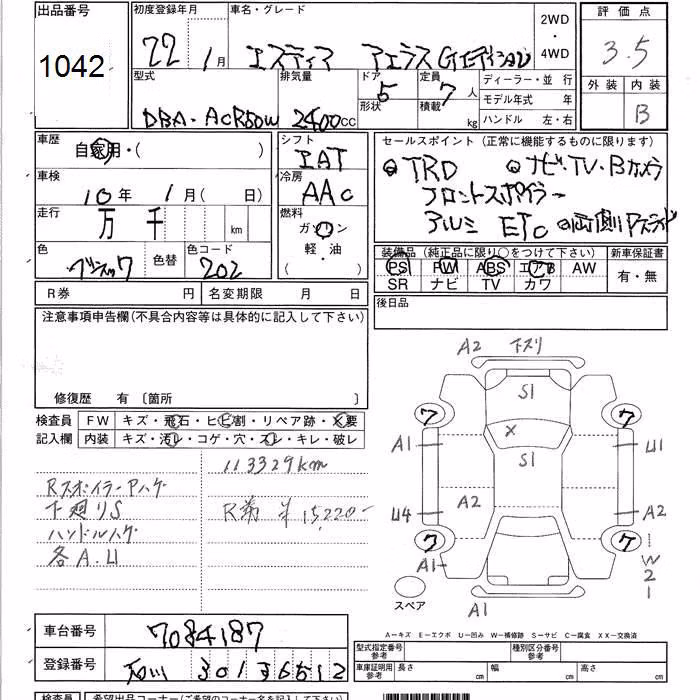 出品番号 初度登録年月 車名・グレード 2WD・4WD 評価点
1042 22年 1月 エスティマ アエラス Gエディション 3.5
型式 排気量 ドア 形状 定員 積載 ディーラー・並行 外装 内装
DBA・ACR50W 2400cc 5 7人 kg モデル年式 年 B
ハンドル 左・右
車歴 自家用・( ) シフト IAT セールスポイント (正常に機能するものに限ります)
車検 10年 1月 ( 日) 冷房 AAC TRD ナビ・TV・Bカメラ
走行 万 千 km 燃料 ガソリン 軽・油 ( ) フロントスポイラー
アルミ ETC 両側Pスライド
色 ブラック 色替 色コード 202 装備品 (純正品に限り○をつけて下さい) 新車保証書
PS PW ABS エアB AW 有・無
SR ナビ TV カワ
R券 円 名変期限 月 日 後日品
注意事項申告欄(不具合内容等は具体的に記入して下さい)
修復歴 有 〔箇所 〕
検査員 FW キズ・飛石・ヒビ割・リペア跡・X要
記入欄 内装 キズ・汚レ・コゲ・穴・スレ・キレ・破レ
113329km
RスポイラーPハゲ
下廻りS R券 ¥15,220-
ハンドルハゲ
各A.U
A2 下スリ
S1
ワ ワ
A1 X U1
S1
U4 A2 A2
ワ ケ
A1 W2 1
スペア A1
A-キズ E-エクボ U-凹み W-補修跡 S-サビ C-腐食 XX-交換済
車台番号 7084187 型式指定番号 参考 種別区分番号 参考
登録番号 石川 301 す 6512 車庫証明用 参考 長さ cm 幅 cm 高さ cm
検査員 希望出品コーナー(ご希望のコーナー名を記入下さい)